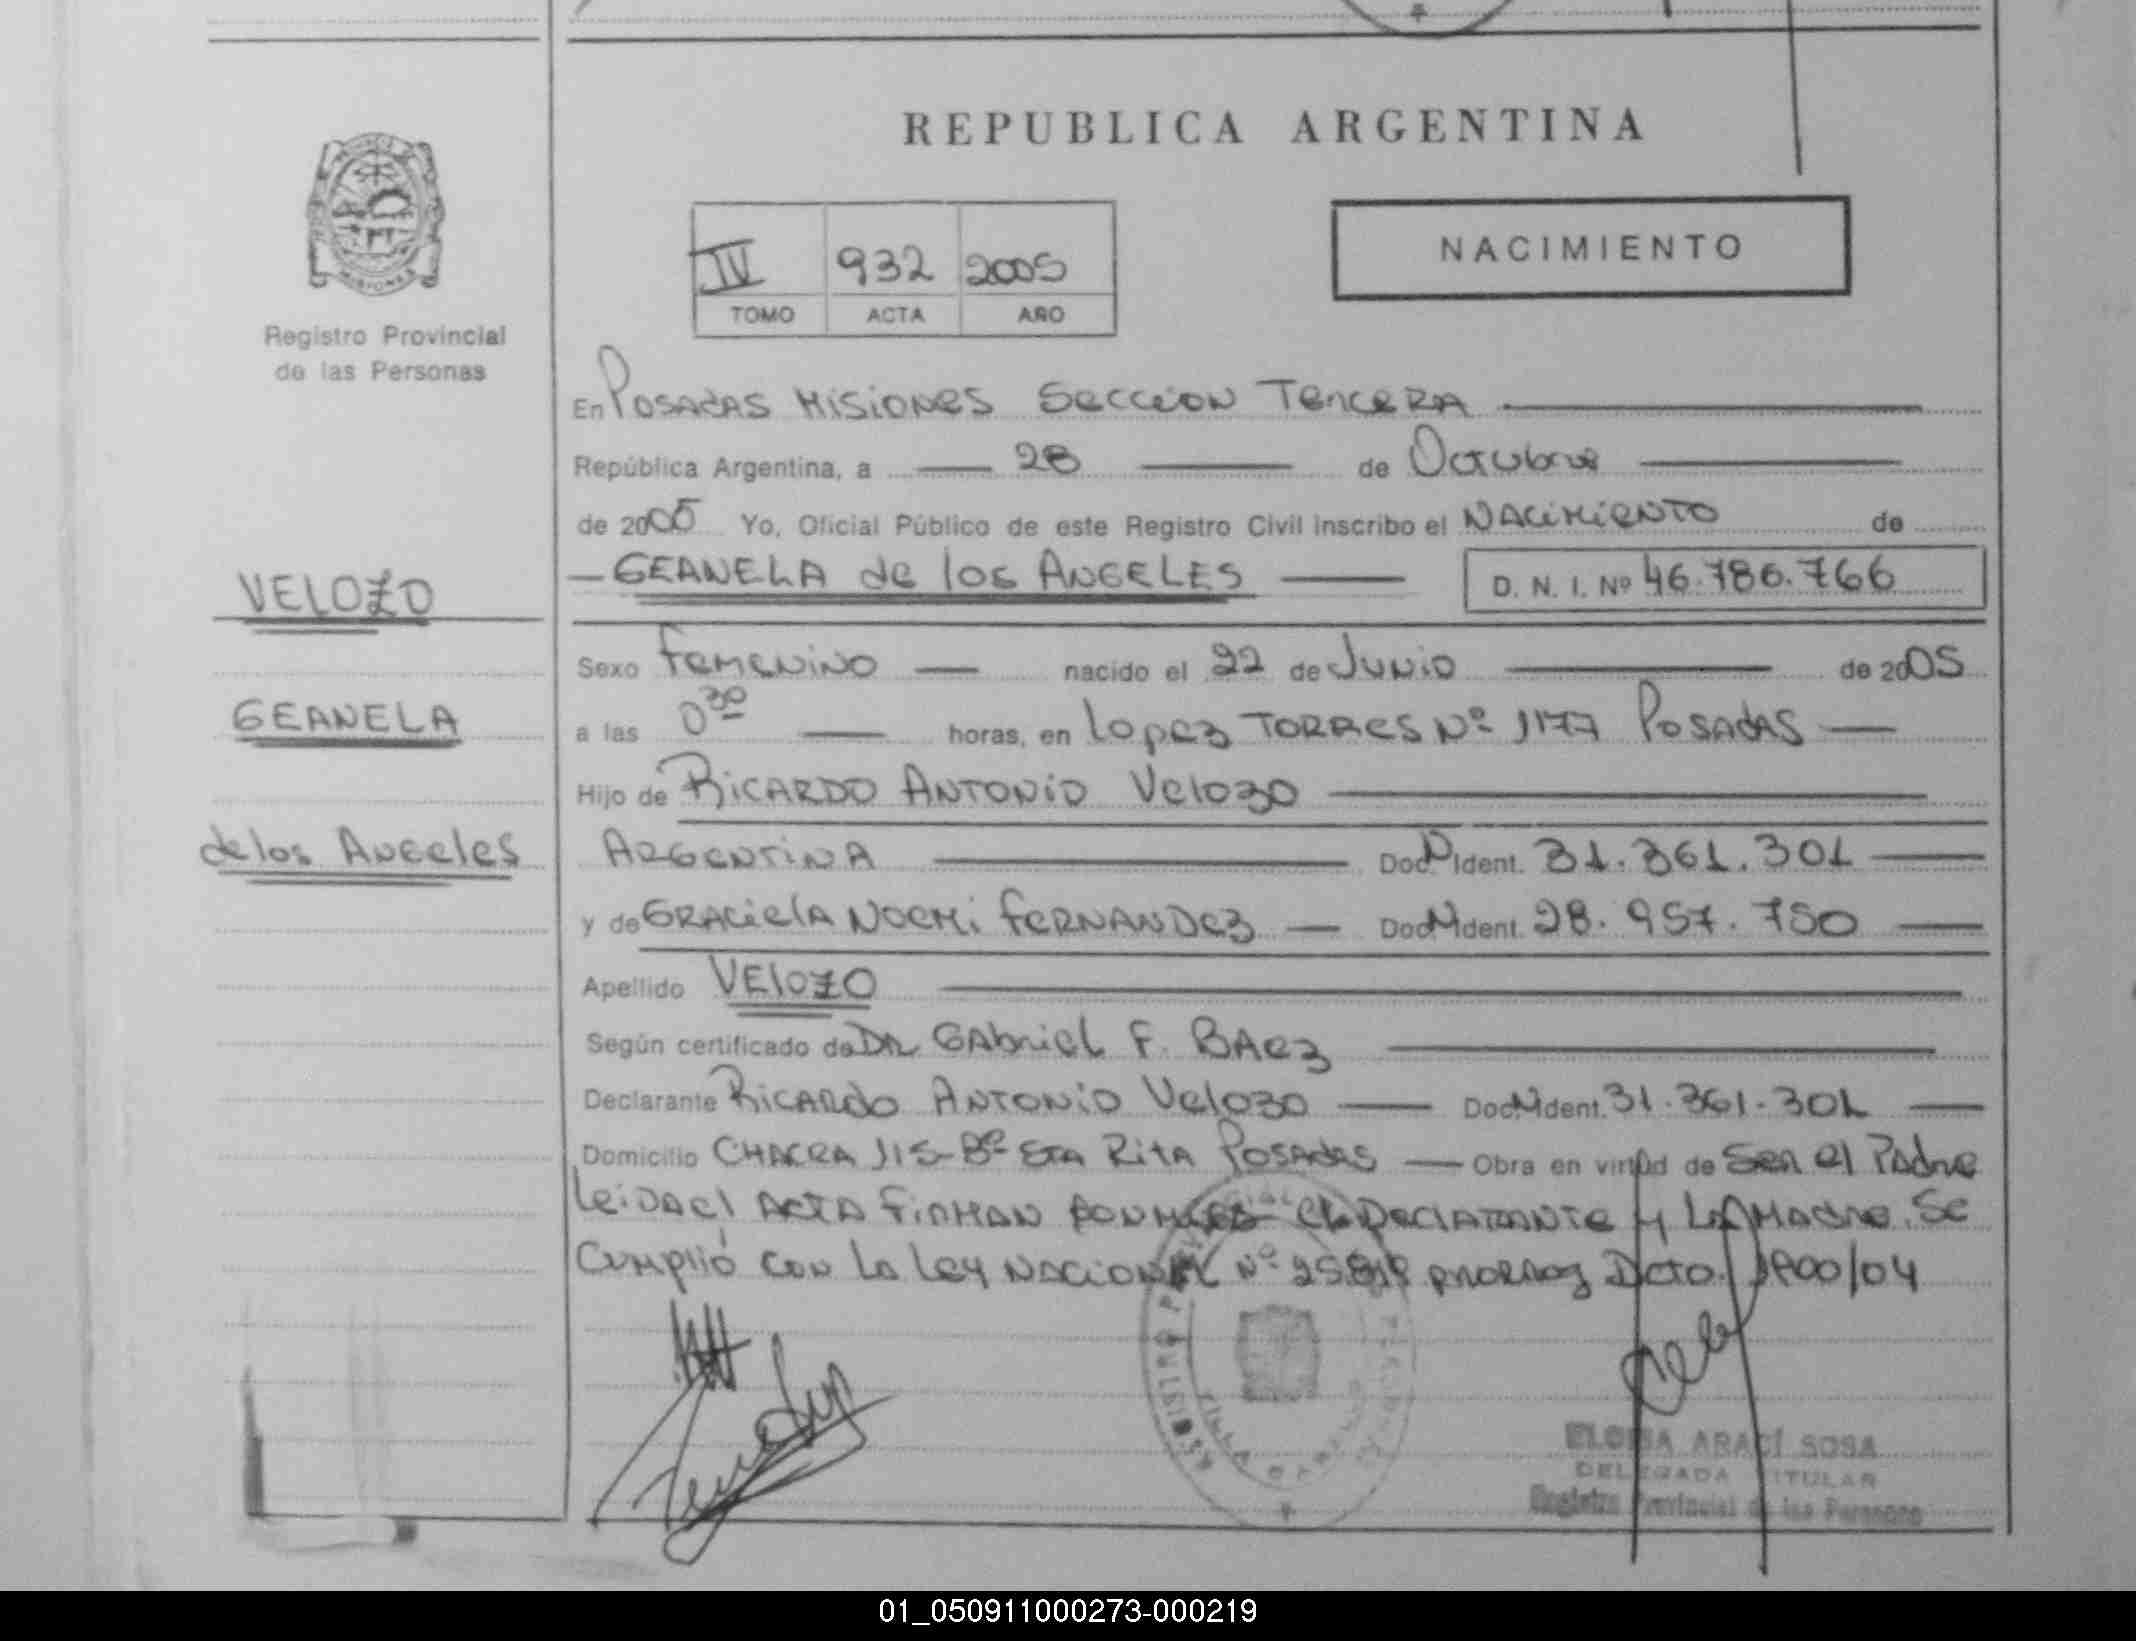 REPUBLICA ARGENTINA
NACIMIENTO
IV 932 2005
TOMO ACTA AÑO
MISIONES
Registro Provincial
de las Personas
En Posadas Misiones Seccion Tercera
República Argentina, a 28 de Octubre
de 2005 Yo, Oficial Público de este Registro Civil inscribo el Nacimiento de
GEANELA de los ANGELES D. N. I. Nº 46.786.766
VELOZO
GEANELA
de los Angeles
Sexo Femenino nacido el 22 de Junio de 2005
a las 0 30 horas, en Lopez Torres Nº 1177 Posadas
Hijo de Ricardo Antonio Velozo
Argentina Doc N Ident. 31.361.301
y de Graciela Noemi Fernandez Doc N Ident. 28.957.750
Apellido VELOZO
Según certificado de DR Gabriel F. Baez
Declarante Ricardo Antonio Velozo Doc N Ident. 31.361.301
Domicilio Chacra 115-Bº Sta Rita Posadas Obra en virtud de Ser el Padre
Leida el Acta Firman el Declarante y La Madre. Se
Cumplió con la Ley Nacional Nº Dcto. 1900/04
REGISTRO PROVINCIAL
ELOISA ARACÍ SOSA
DELEGADA TITULAR
Registro Provincial de las Personas
01_050911000273-000219